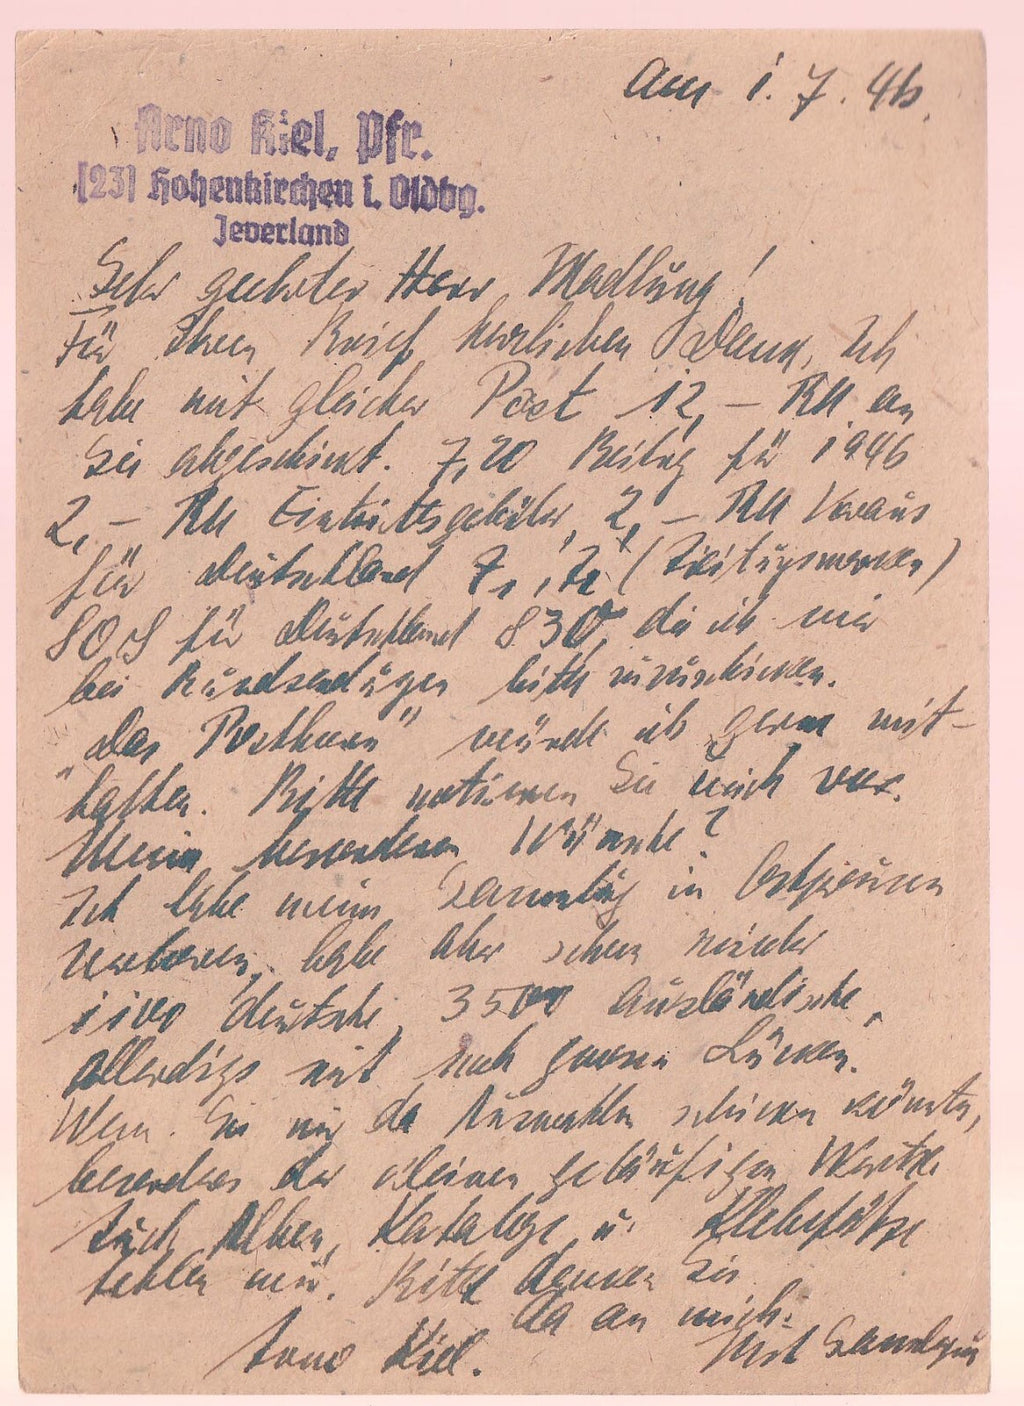 Am 1. 7. 46.
Arno Kiel, Pfr.
(23) Hohenkirchen i. Oldbg.
Jeverland
Sehr geehrter Herr Madlung!
Für Ihren Brief herzlichen Dank. Ich
habe mit gleicher Post 12,- RM an
Sie abgeschickt. 7,20 Beitrag für 1946
2,- RM Eintrittsgebühr, 2,- RM Voraus
für Deutschland (Zeitungsmarken)
80 für Deutschland 830, die ich mir
bei Rundsendungen bitte zurückschicken.
"Das Posthorn" würde ich gerne mit-
halten. Bitte notieren Sie mich vor.
Meine besonderen Wünsche?
Ich habe meine Sammlung in Ostpreussen
verloren, habe aber schon wieder
1100 deutsche, 3500 ausländische,
allerdigs mit noch grossen Lücken.
Wenn Sie mir da Auswahlen schicken könnten,
besonders der kleinen geläufigen Werte.
Auch Alben, Kataloge u. Klebefälze
fehlen mir. Bitte denken Sie
da an mich.
Mit Sammlergruß
Arno Kiel.